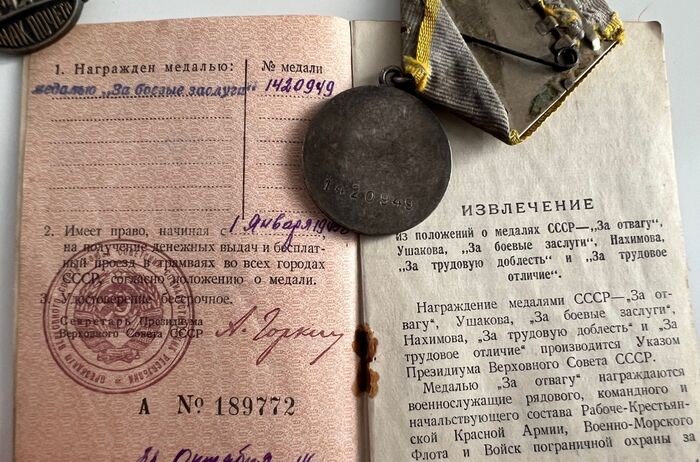 ЗНАК ПОЧЕ
1. Награжден медалью:
медалью „За боевые заслуги"
№ медали
1420949
1420949
2. Имеет право, начиная с 1 Января 194
на получение денежных выдач и бесплат-
ный проезд в трамваях во всех городах
СССР, согласно положению о медали.
3. Удостоверение бессрочное.
Секретарь Президиума
Верховного Совета СССР
А. Горкин
А № 189772
Октября
ИЗВЛЕЧЕНИЕ
из положений о медалях СССР—„За отвагу",
Ушакова, „За боевые заслуги", Нахимова,
„За трудовую доблесть" и „За трудовое
отличие".
Награждение медалями СССР—„За от-
вагу", Ушакова, „За боевые заслуги",
Нахимова, „За трудовую доблесть" и „За
трудовое отличие" производится Указом
Президиума Верховного Совета СССР.
Медалью „За отвагу" награждаются
военнослужащие рядового, командного и
начальствующего состава Рабоче-Крестьян-
ской Красной Армии, Военно-Морского
Флота и Войск пограничной охраны за